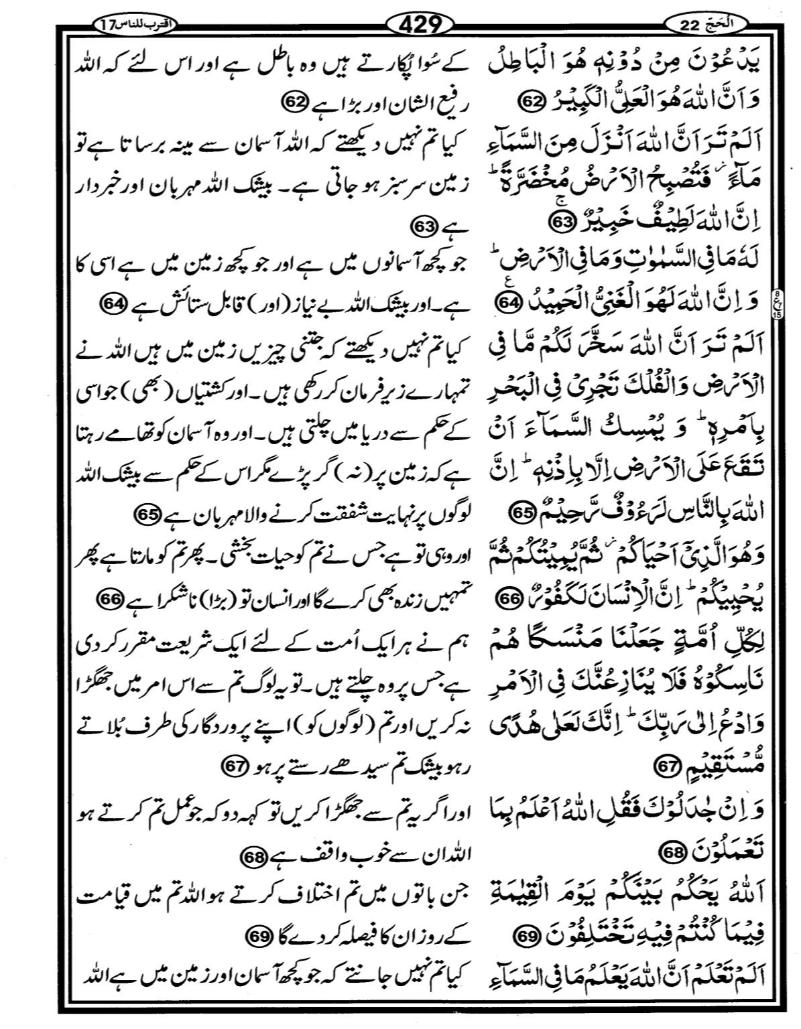 الحج 22
429
اقترب للناس 17
يَدْعُوْنَ مِنْ دُوْنِهٖ هُوَ الْبَاطِلُ
وَاَنَّ اللّٰهَ هُوَ الْعَلِیُّ الْكَبِیْرُ 62
اَلَمْ تَرَ اَنَّ اللّٰهَ اَنْزَلَ مِنَ السَّمَآءِ
مَآءً ؗ فَتُصْبِحُ الْاَرْضُ مُخْضَرَّةً ؕ
اِنَّ اللّٰهَ لَطِیْفٌ خَبِیْرٌ ۚ 63
لَهٗ مَا فِی السَّمٰوٰتِ وَمَا فِی الْاَرْضِ ؕ
وَاِنَّ اللّٰهَ لَهُوَ الْغَنِیُّ الْحَمِیْدُ 64 ع
اَلَمْ تَرَ اَنَّ اللّٰهَ سَخَّرَ لَكُمْ مَّا فِی
الْاَرْضِ وَالْفُلْكَ تَجْرِیْ فِی الْبَحْرِ
بِاَمْرِهٖ ؕ وَ یُمْسِكُ السَّمَآءَ اَنْ
تَقَعَ عَلَی الْاَرْضِ اِلَّا بِاِذْنِهٖ ؕ اِنَّ
اللّٰهَ بِالنَّاسِ لَرَءُوْفٌ رَّحِیْمٌ 65
وَهُوَ الَّذِیْۤ اَحْیَاكُمْ ؗ ثُمَّ یُمِیْتُكُمْ ثُمَّ
یُحْیِیْكُمْ ؕ اِنَّ الْاِنْسَانَ لَكَفُوْرٌ 66
لِكُلِّ اُمَّةٍ جَعَلْنَا مَنْسَكًا هُمْ
نَاسِكُوْهُ فَلَا یُنَازِعُنَّكَ فِی الْاَمْرِ
وَادْعُ اِلٰی رَبِّكَ ؕ اِنَّكَ لَعَلٰی هُدًی
مُّسْتَقِیْمٍ 67
وَاِنْ جٰدَلُوْكَ فَقُلِ اللّٰهُ اَعْلَمُ بِمَا
تَعْمَلُوْنَ 68
اَللّٰهُ یَحْكُمُ بَیْنَكُمْ یَوْمَ الْقِیٰمَةِ
فِیْمَا كُنْتُمْ فِیْهِ تَخْتَلِفُوْنَ 69
اَلَمْ تَعْلَمْ اَنَّ اللّٰهَ یَعْلَمُ مَا فِی السَّمَآءِ
8
ع
15
کے سُوا پُکارتے ہیں وہ باطل ہے اور اس لئے کہ اللہ
رفیع الشان اور بڑا ہے 62
کیا تم نہیں دیکھتے کہ اللہ آسمان سے مینہ برساتا ہے تو
زمین سرسبز ہو جاتی ہے۔ بیشک اللہ مہربان اور خبردار
ہے 63
جو کچھ آسمانوں میں ہے اور جو کچھ زمین میں ہے اسی کا
ہے۔ اور بیشک اللہ بے نیاز (اور) قابل ستائش ہے 64
کیا تم نہیں دیکھتے کہ جتنی چیزیں زمین میں ہیں اللہ نے
تمہارے زیرِ فرمان کر رکھی ہیں۔ اور کشتیاں (بھی) جو اسی
کے حکم سے دریا میں چلتی ہیں۔ اور وہ آسمان کو تھامے رہتا
ہے کہ زمین پر (نہ) گر پڑے مگر اس کے حکم سے بیشک اللہ
لوگوں پر نہایت شفقت کرنے والا مہربان ہے 65
اور وہی تو ہے جس نے تم کو حیات بخشی۔ پھر تم کو مارتا ہے پھر
تمہیں زندہ بھی کرے گا اور انسان تو (بڑا) ناشکرا ہے 66
ہم نے ہر ایک اُمت کے لئے ایک شریعت مقرر کر دی
ہے جس پر وہ چلتے ہیں۔ تو یہ لوگ تم سے اس امر میں جھگڑا
نہ کریں اور تم (لوگوں کو) اپنے پروردگار کی طرف بُلاتے
رہو بیشک تم سیدھے رستے پر ہو 67
اور اگر یہ تم سے جھگڑا کریں تو کہہ دو کہ جو عمل تم کرتے ہو
اللہ ان سے خوب واقف ہے 68
جن باتوں میں تم اختلاف کرتے ہو اللہ تم میں قیامت
کے روز ان کا فیصلہ کر دے گا 69
کیا تم نہیں جانتے کہ جو کچھ آسمان اور زمین میں ہے اللہ